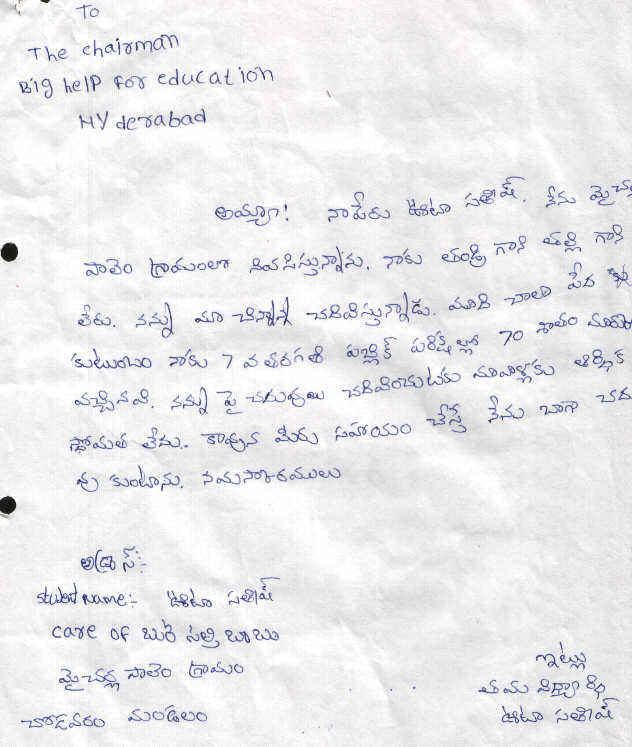 To
The chairman
Big help for education
HYderabad
అయ్యా! నాపేరు ఊటా సతీష్. నేను మైచర్ల
పాలెం గ్రామంలో నివసిస్తున్నాను. నాకు తండ్రి గాని తల్లి గాని
లేరు. నన్ను మా చిన్నాన్న చదివిస్తున్నాడు. మాది చాలా పేద
కుటుంబం నాకు 7 వ తరగతి పబ్లిక్ పరీక్షల్లో 70 శాతం మార్కులు
వచ్చినవి. నన్ను పై చదువులు చదివించుటకు మావాళ్లకు ఆర్ధిక
స్తోమత లేదు. కావున మీరు సహాయం చేస్తే నేను బాగా చదు
వు కుంటాను. నమస్కారములు
అడ్రాస్:-
student Name:- ఊటా సతీష్
care of బురె సత్తి బాబు
మైచర్ల పాలెం గ్రామం
చోడవరం మండలం
ఇట్లు
తమ విద్యార్థి
ఊటా సతీష్